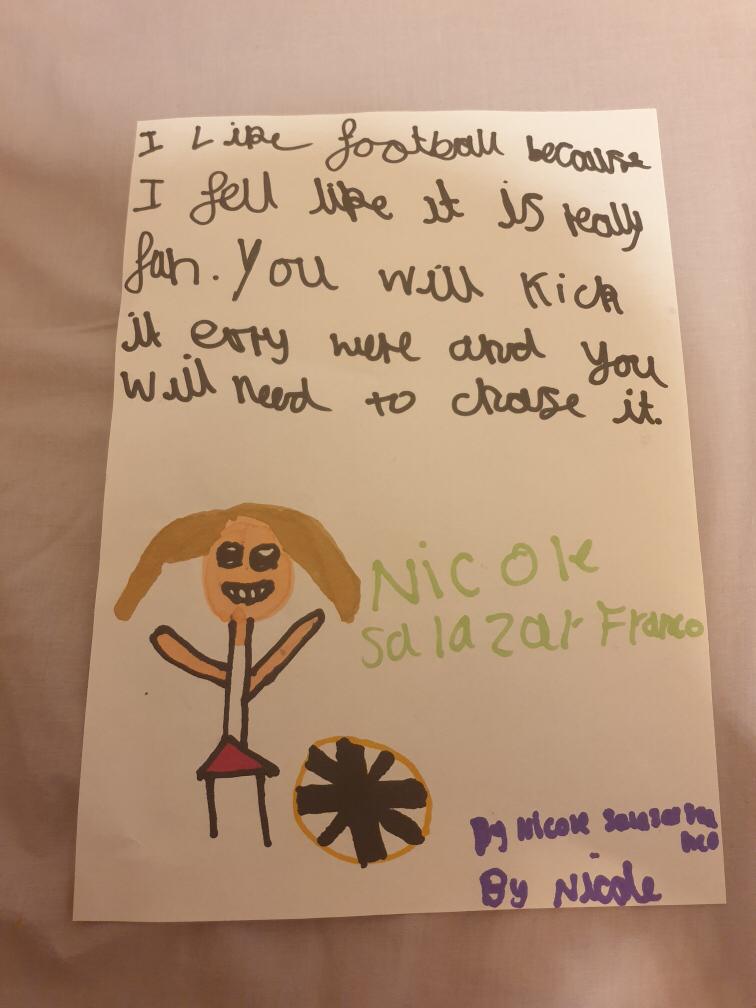 I Like football because
I fell like it is really
fan. You will Kick
it erry were and you
will need to chase it.
Nicole
Salazar Franco
By Nicole Salazar Fra
nco
By Nicole